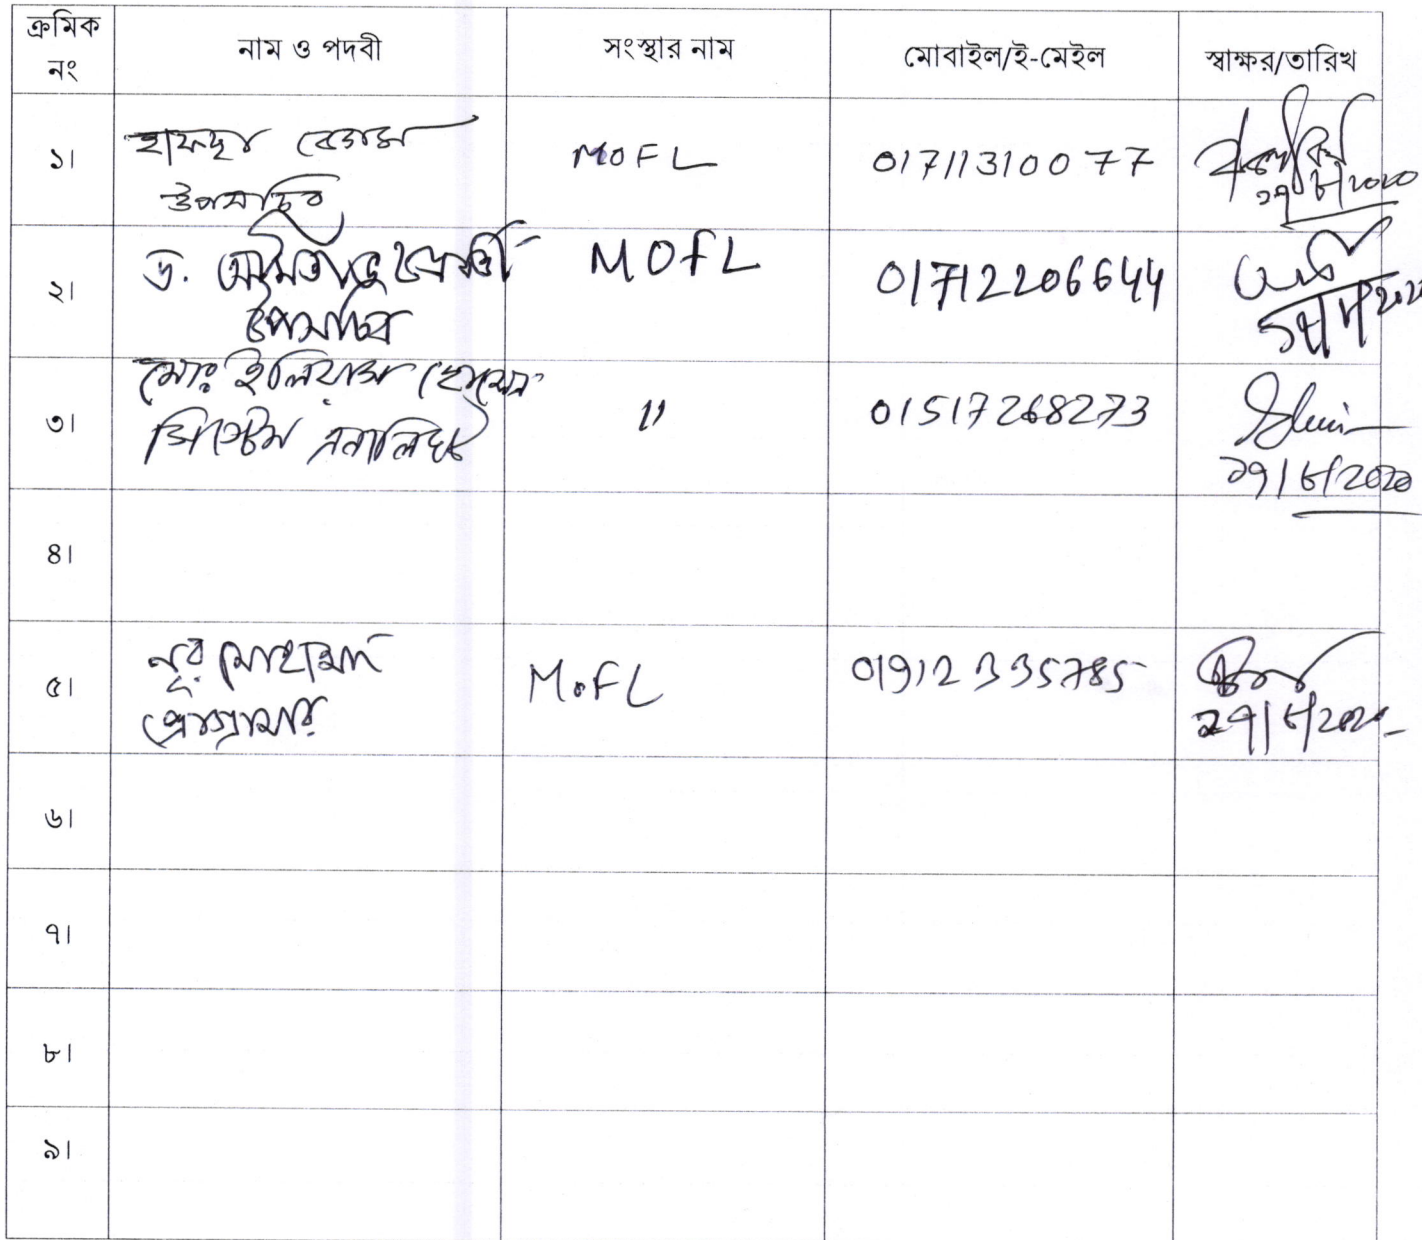 ক্রমিক নং
নাম ও পদবী
সংস্থার নাম
মোবাইল/ই-মেইল
স্বাক্ষর/তারিখ
১।
বেগম
উপসচিব
MOFL
01711310077
২৭/৮/২০২০
২।
ড. অমিতাভ চক্রবর্ত্তী
উপসচিব
MOFL
01712206644
৩।
মোঃ ইলিয়াস হোসেন
সিস্টেম এনালিষ্ট
"
01517268273
২৭/৮/2020
৪।
৫।
নূর মোহাম্মদ
প্রোগ্রামার
MoFL
01912335785
২৭/৮/2020
৬।
৭।
৮।
৯।